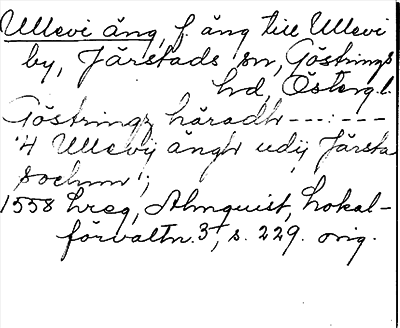 Ullevi äng, f. äng till Ullevi
by, Järstads sn, Göstrings
hd, Östergl.
Göstringz häradh ---:---
"4 Ullevij ängh udij Järsta
sochnn";
1558 hreg, Almquist, Lokal-
förvaltn. 3, s. 229. orig.